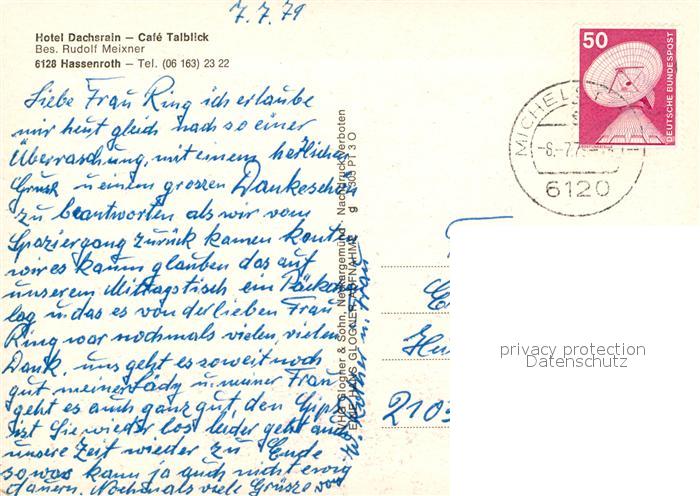 7.7.79
Hotel Dachsrain – Café Talblick
Bes. Rudolf Meixner
6128 Hassenroth – Tel. (06 163) 23 22
Liebe Frau Ring ich erlaube
mir heut gleich nach so einer
Überraschung, mit einem herlichen
Gruß u einem grossen Dankeschön
zu beantworten als wir vom
Spaziergang zurück kamen konten
wir es kaum glauben das auf
unserem Mittagstisch ein Päckchen
lag u das es von der lieben Frau
Ring war nochmals vielen, vielen
Dank, uns geht es soweit noch
gut meiner Lady u. meiner Frau
geht es auch ganz gut, den Gips
ist Sie wieder los leider geht auch
unsere Zeit wieder zu Ende
so was kann ja auch nicht ewig
dauern. Nochmals viele Grüsse von
u. Frau
WHG Glogner & Sohn, Neckargemünd Nachdruck verboten
HANS GLOGNER-AUFNAHME
50
DEUTSCHE BUNDESPOST
MICHELS
6120
210
privacy protection
Datenschutz